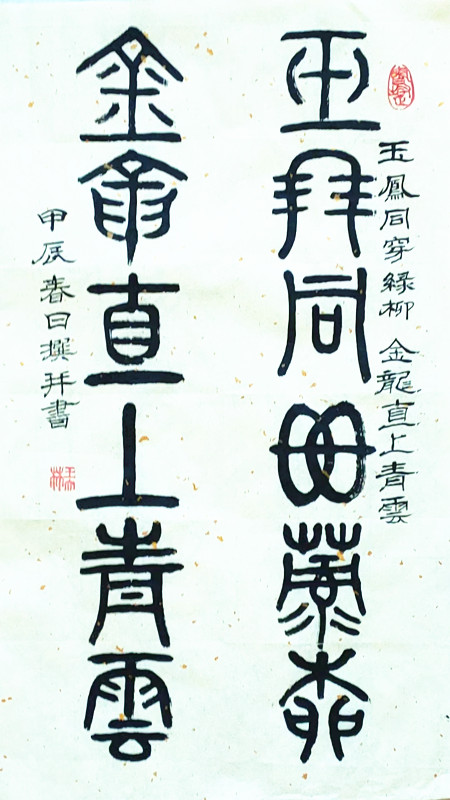 玉鳳同穿綠柳 金龍直上青雲
玉鳳同穿綠柳
金龍直上青雲
甲辰春日撰并書